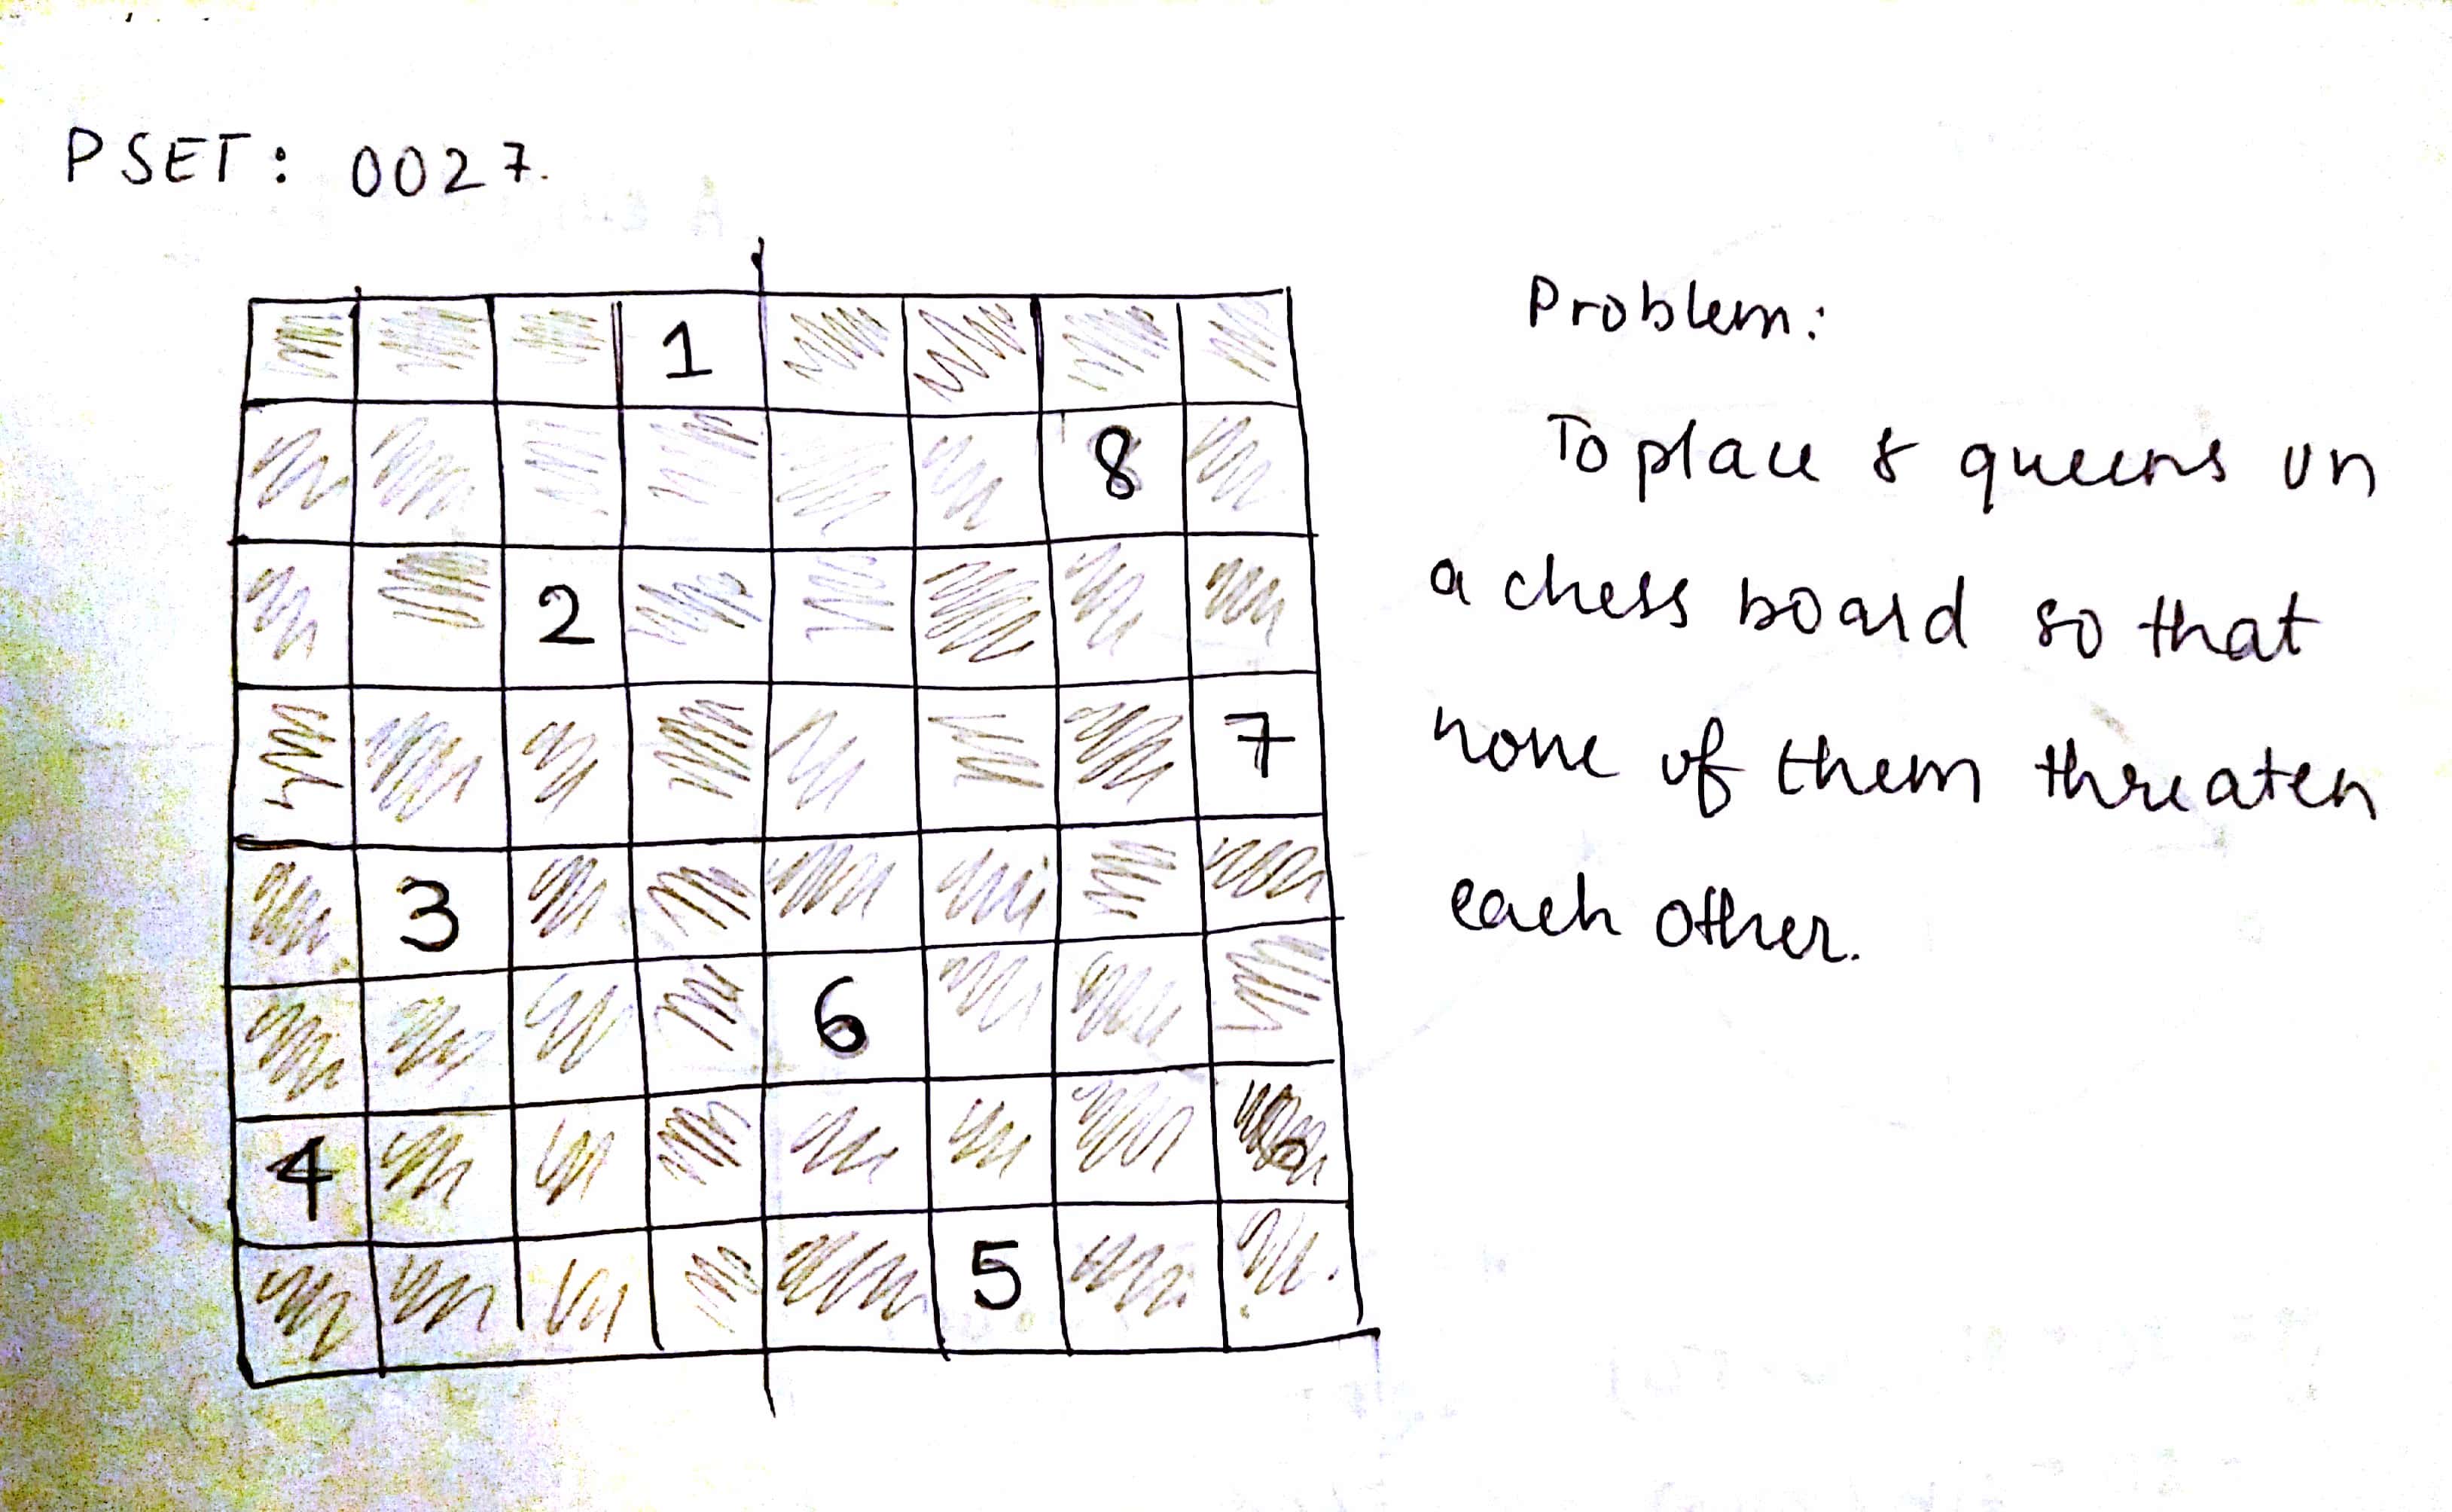 PSET: 0027.
Problem:
To place 8 queens on
a chess board so that
none of them threaten
each other.
1
8
2
7
3
6
4
5